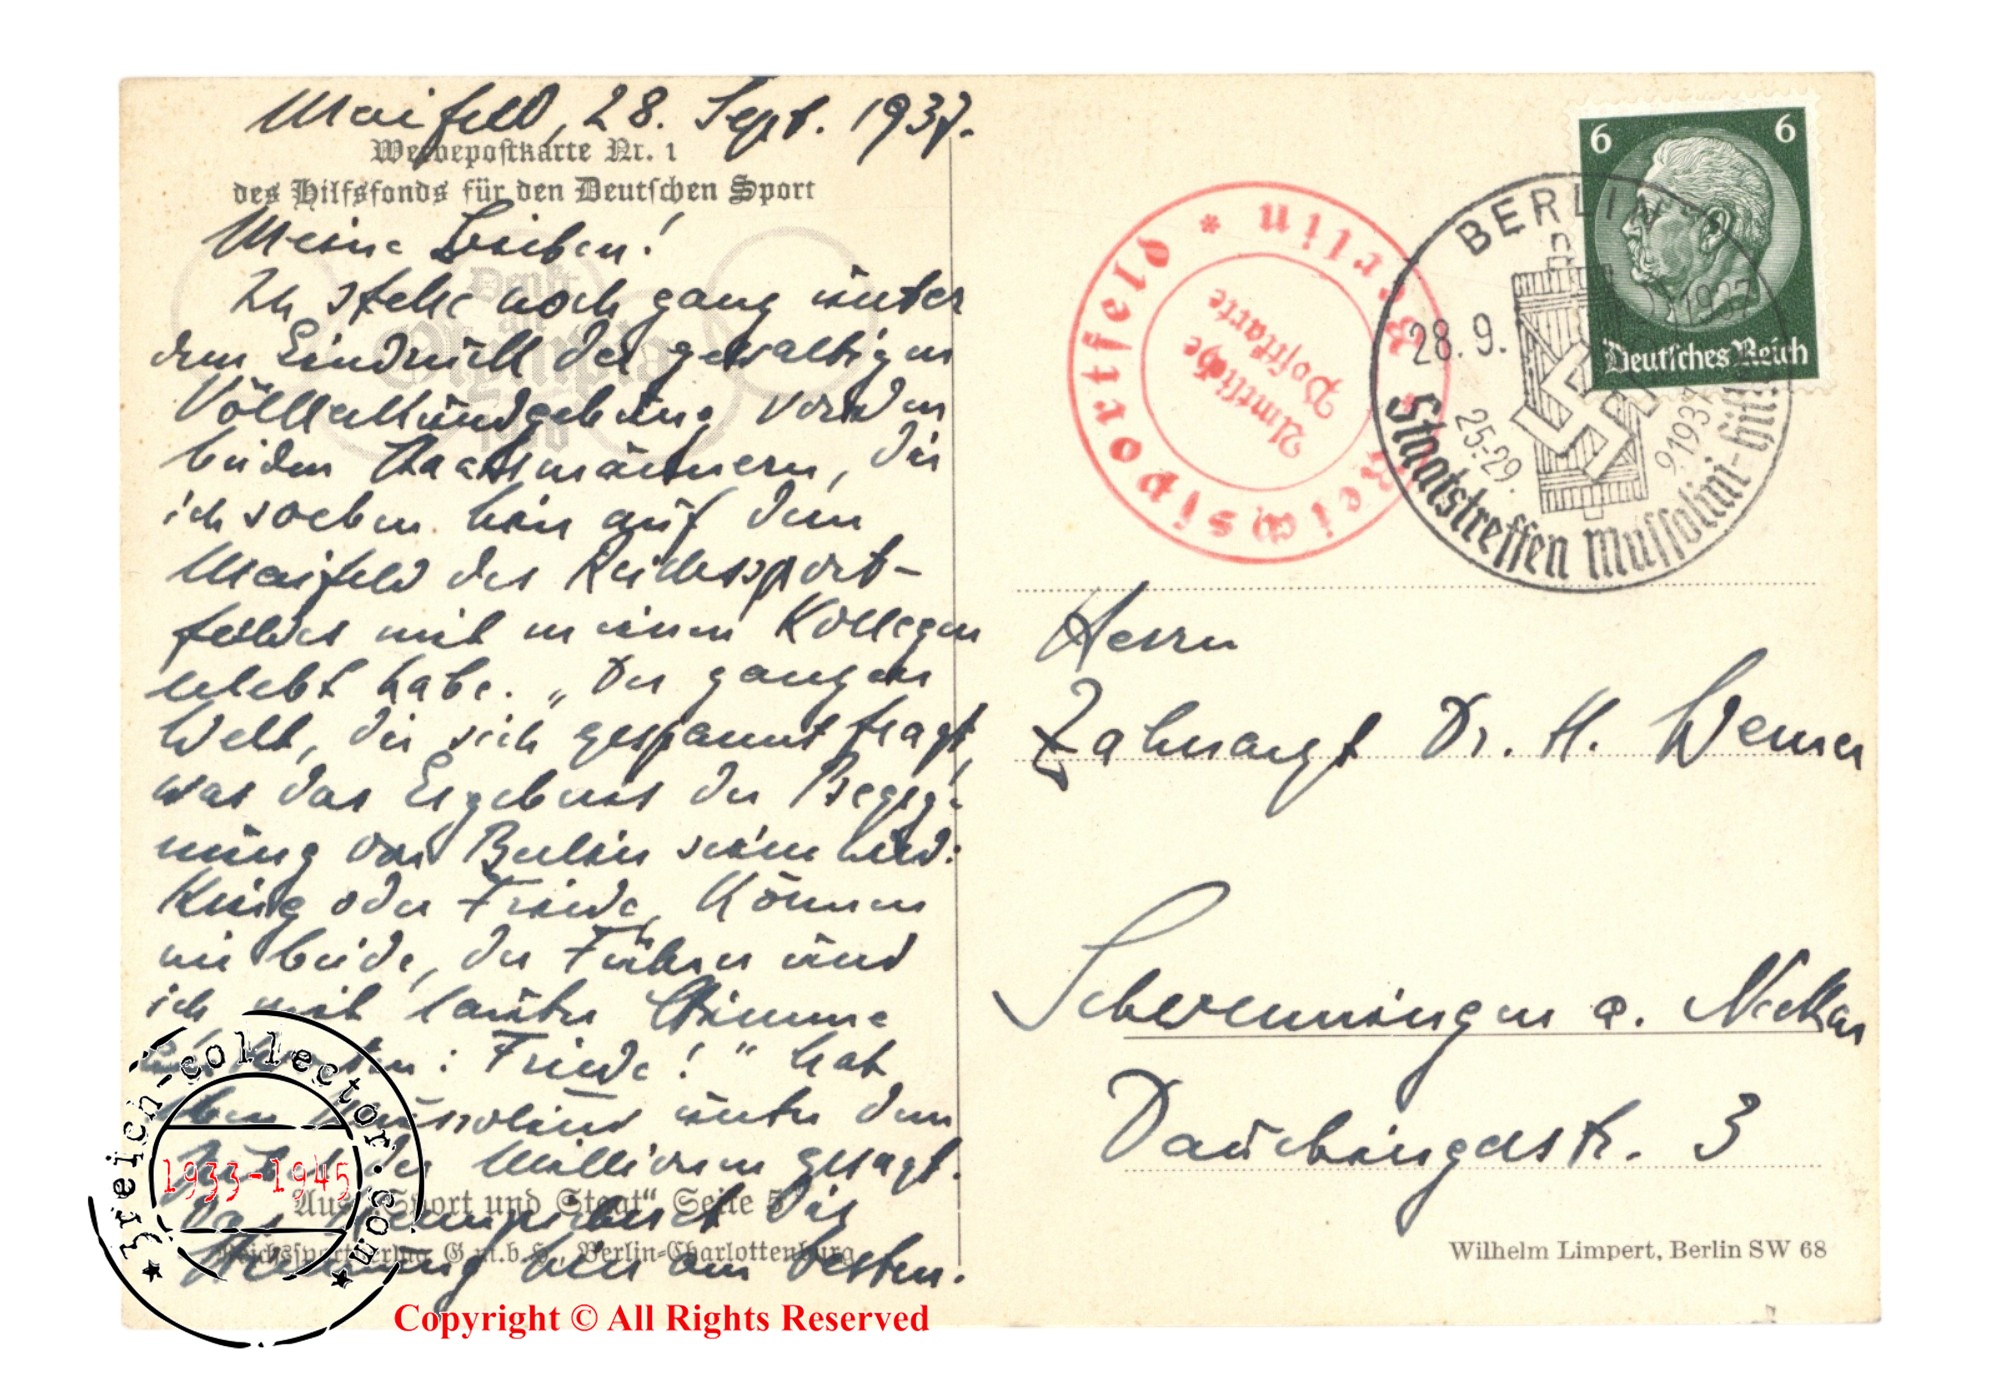 Maifeld, 28. Sept. 1937.
Werbepostkarte Nr. 1
des Hilfsfonds für den Deutschen Sport
Meine Lieben!
Ich stehe noch ganz unter
dem Eindruck der gewaltigen
Völkerkundgebung vor den
beiden Staatsmännern, die
ich soeben hier auf dem
Maifeld des Reichssport-
feldes mit meinen Kollegen
erlebt habe. „Der ganzen
Welt, die sich gespannt fragt,
was das Ergebnis der Begeg-
nung von Berlin sein wird:
Krieg oder Friede, können
wir beide, der Führer und
ich mit lauter Stimme
antworten: Friede!" hat
eben Mussolini unter dem
Jubel der Millionen gesagt.
Das kennzeichnet die
Stimmung hier am besten.
Denkt
an
Olympia
1936
Aus „Sport und Staat" Seite 5
Reichssportverlag G.m.b.H., Berlin-Charlottenburg
Reichssportfeld * Berlin *
Amtliche
Postkarte
BERLIN
28.9.
1937
25.-29.
9.1937
Staatstreffen Mussolini-Hitler
6 6
Deutsches Reich
Herrn
Zahnarzt Dr. H. Werner
Schwenningen a. Neckar
Dauchingerstr. 3
Wilhelm Limpert, Berlin SW 68
3reich-collector.com
1933-1945
Copyright © All Rights Reserved